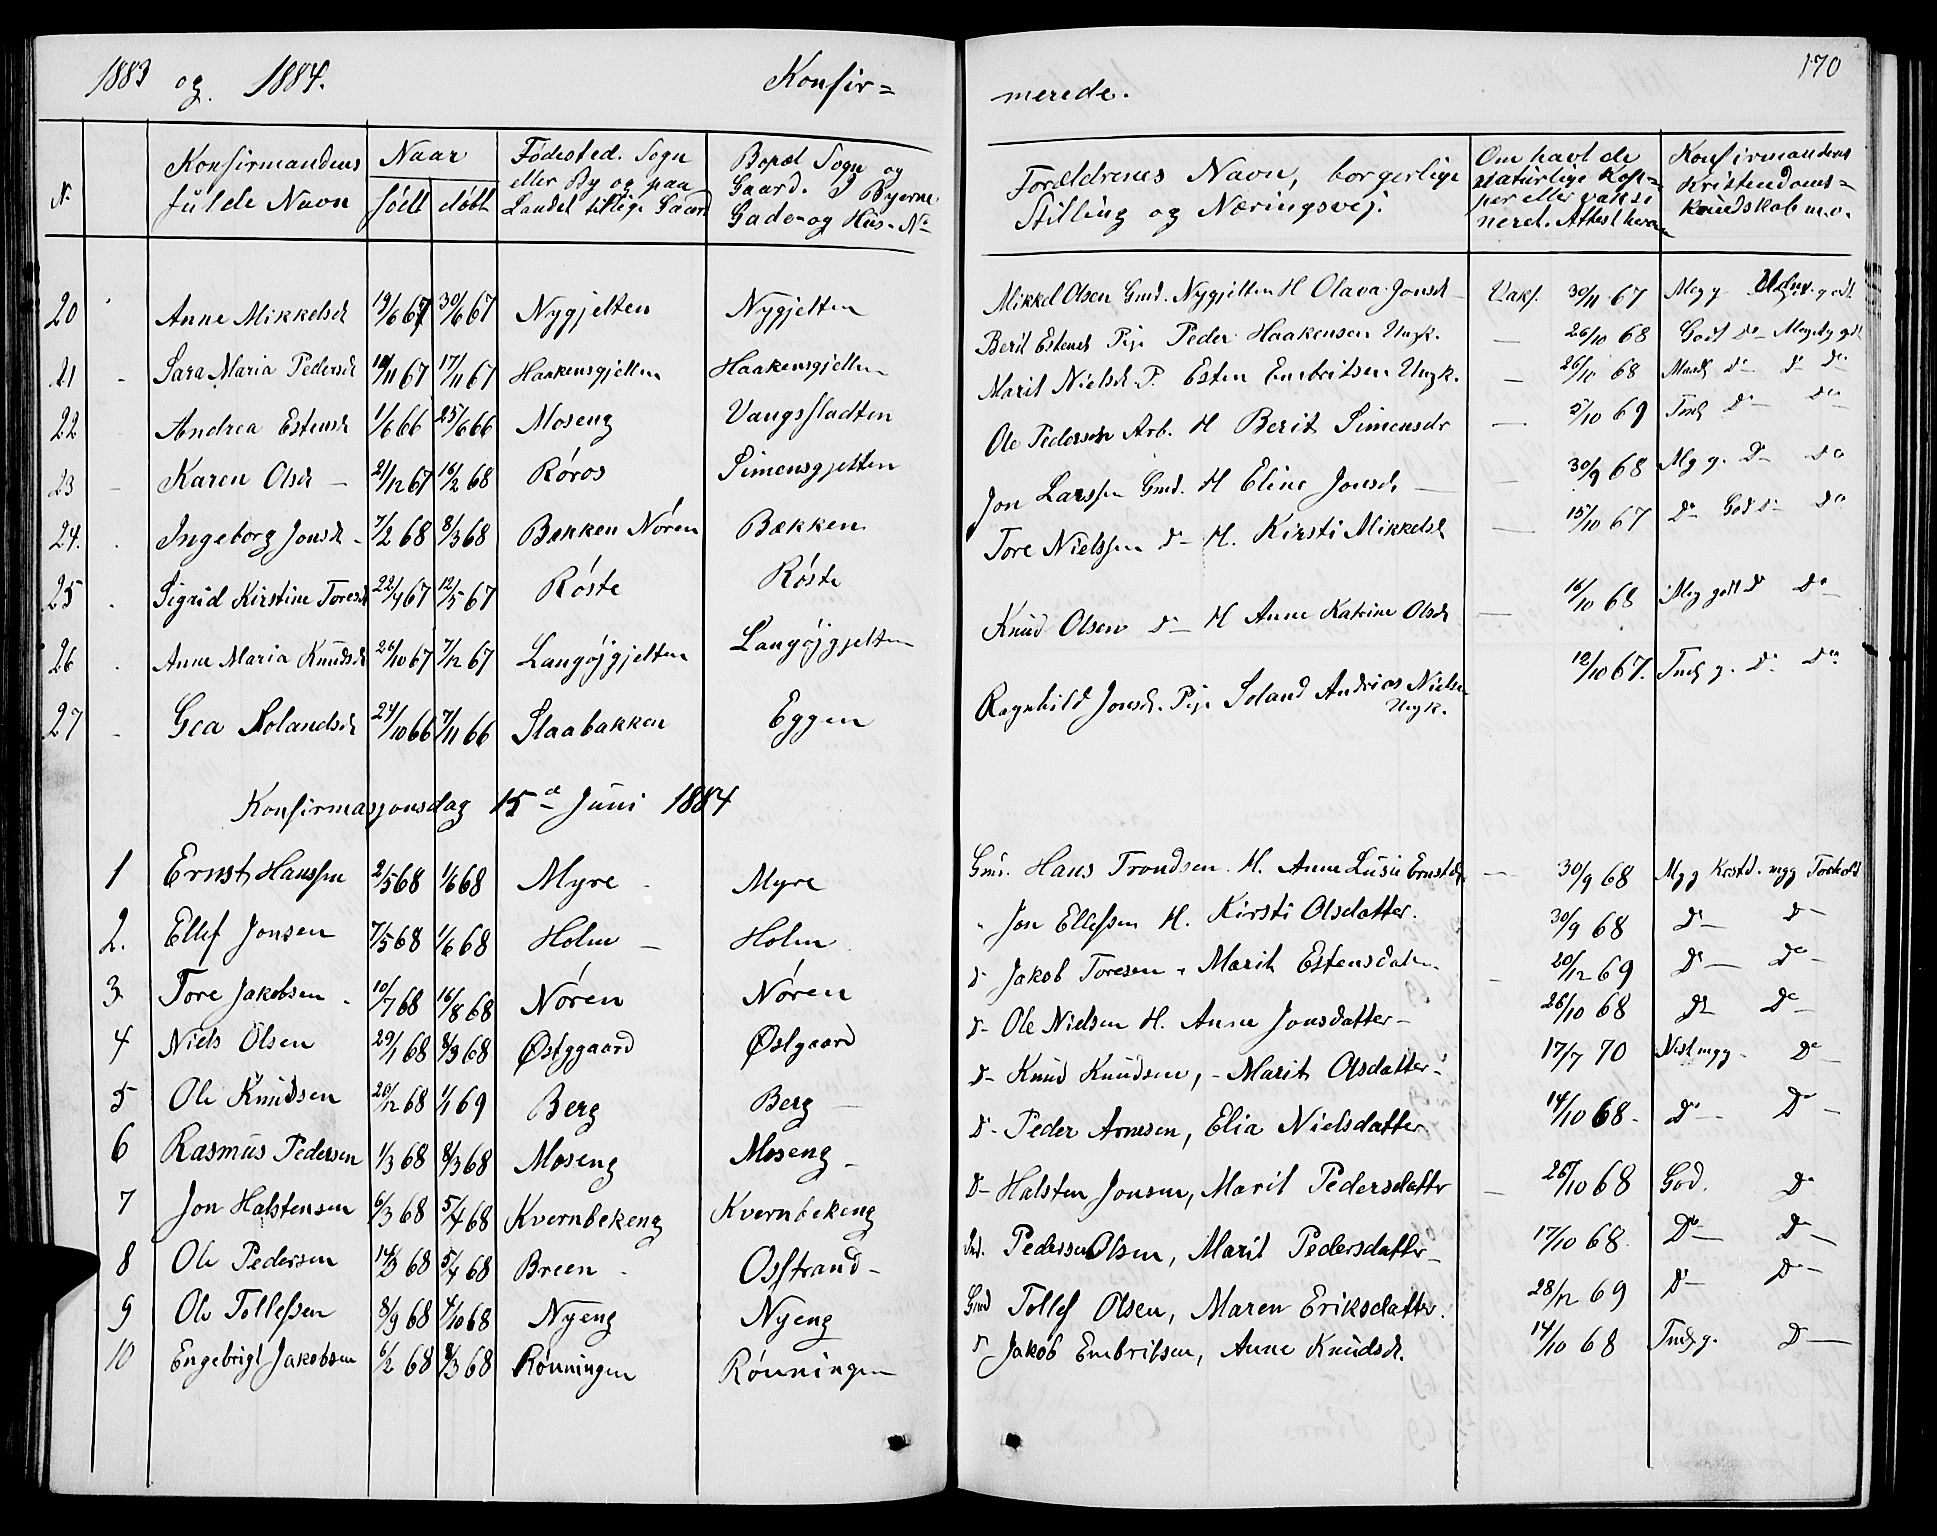 1883 og 1884. Konfir=
merede. 170
N. Konfirmandens fulde Navn Naar født døbt Fødested. Sogn eller By og paa Landet tillige Gaard Bopæl Sogn og Gaard. I Byerne Gade og Hus-No
Forældrenes Navn, borgerlige Stilling og Næringsvej. Om havt de naturlige Kopper eller vaksineret. Attest herom Konfirmandens Kristendoms=kundskab m.v.
20 Anne Mikkelsd 19/6 67 30/6 67 Nygjelten Nygjelten Mikkel Olsen Gmd. Nygjelten H Olava Jonsd Vaks. 30/11 67 Meg g.
21 Sara Maria Pedersd 10/11 67 17/11 67 Haakensgjelten Haakensgjelten Berit Estensd Pige Peder Haakensen Ungk. — 26/10 68 Godt Do Meget godt
22 Andrea Estensd 1/6 66 25/6 66 Moseng Vangsstadten Marit Nielsd P. Esten Embritsen Ungk. — 26/10 68 Do Do Do
23 Karen Olsd — 21/12 67 16/2 68 Røros Simensgjelten Ole Pedersen Arb. H Berit Simensdr — 2/10 69 Do Do
24. Ingeborg Jonsd 7/2 68 8/3 68 Bakken Nøren Bakken Jon Larssen Gmd. H Eline Jonsd. — 30/9 68 Mg g. Do Do
25 Sigrid Kirstine Toresd 22/4 67 12/5 67 Røste Røste Tore Nielssen Do H. Kirsti Mikkelsd — 15/10 67 Do God Do Do
26 Anne Maria Knudsd 26/10 67 7/12 67 Langøjgjelten Langøjgjelten Knud Olsen Do H Anne Katrine Olsd — 16/10 68 Meg godt Do Do
27 Gea Solandsd 24/10 66 7/11 66 Slaabakken Eggen Ragnhild Jonsd. Pige Soland Andrias Nielsen Ungk. 12/10 67. Do Do
Konfirmasjonsdag 15d Juni 1884
1 Ernst Hanssen 2/5 68 1/6 68 Myre Myre Gmd. Hans Trondsen. H. Anne Lusie Ernstdr — 30/9 68 Mgg Krstd. mgg Forhold
2. Ellef Jonsen 7/5 68 1/6 68 Holm — Holm " Jon Ellefsen H. Kirsti Olsdatter. 30/9 68 Do Do
3 Tore Jakobsen 10/7 68 16/8 68 Nøren Nøren Do Jakob Toresen " Marit Estensdatter — 20/12 69 Do Do
4 Niels Olsen 29/1 68 8/3 68 Østggaard Østgaard Do Ole Nielsen H. Anne Jonsdatter 26/10 68 Do Do
5 Ole Knudsen 20/12 68 1/1 69 Berg Berg — Do Knud Knudsen, - Marit Olsdatter 17/7 70 Nest mgg. Do
6 Rasmus Pedersen 1/3 68 8/3 68 Moseng Moseng Do Peder Arnesen, Elia Nielsdatter 14/10 68. Do Do
7 Jon Halstensen 6/3 68 5/4 68 Kvernbekeng Kvernbekeng Do Halsten Jonsen, Marit Pedersdattr — 26/10 68 God. Do
8 Ole Pedersen 14/3 68 5/4 68 Breen Osstrand Pedersen Olsen, Marit Pedersdatter 17/10 68. Do Do
9 Ole Tollefsen 8/9 68 4/10 68 Nyeng Nyeng Gmd Tollef Olsen, Maren Eriksdatter. 28/12 69 Do Do
10 Engebrigt Jakobsen 6/2 68 8/3 68 Rønningen Rønningen Do Jakob Embritsen, Anne Knudsd. 14/10 68 Do